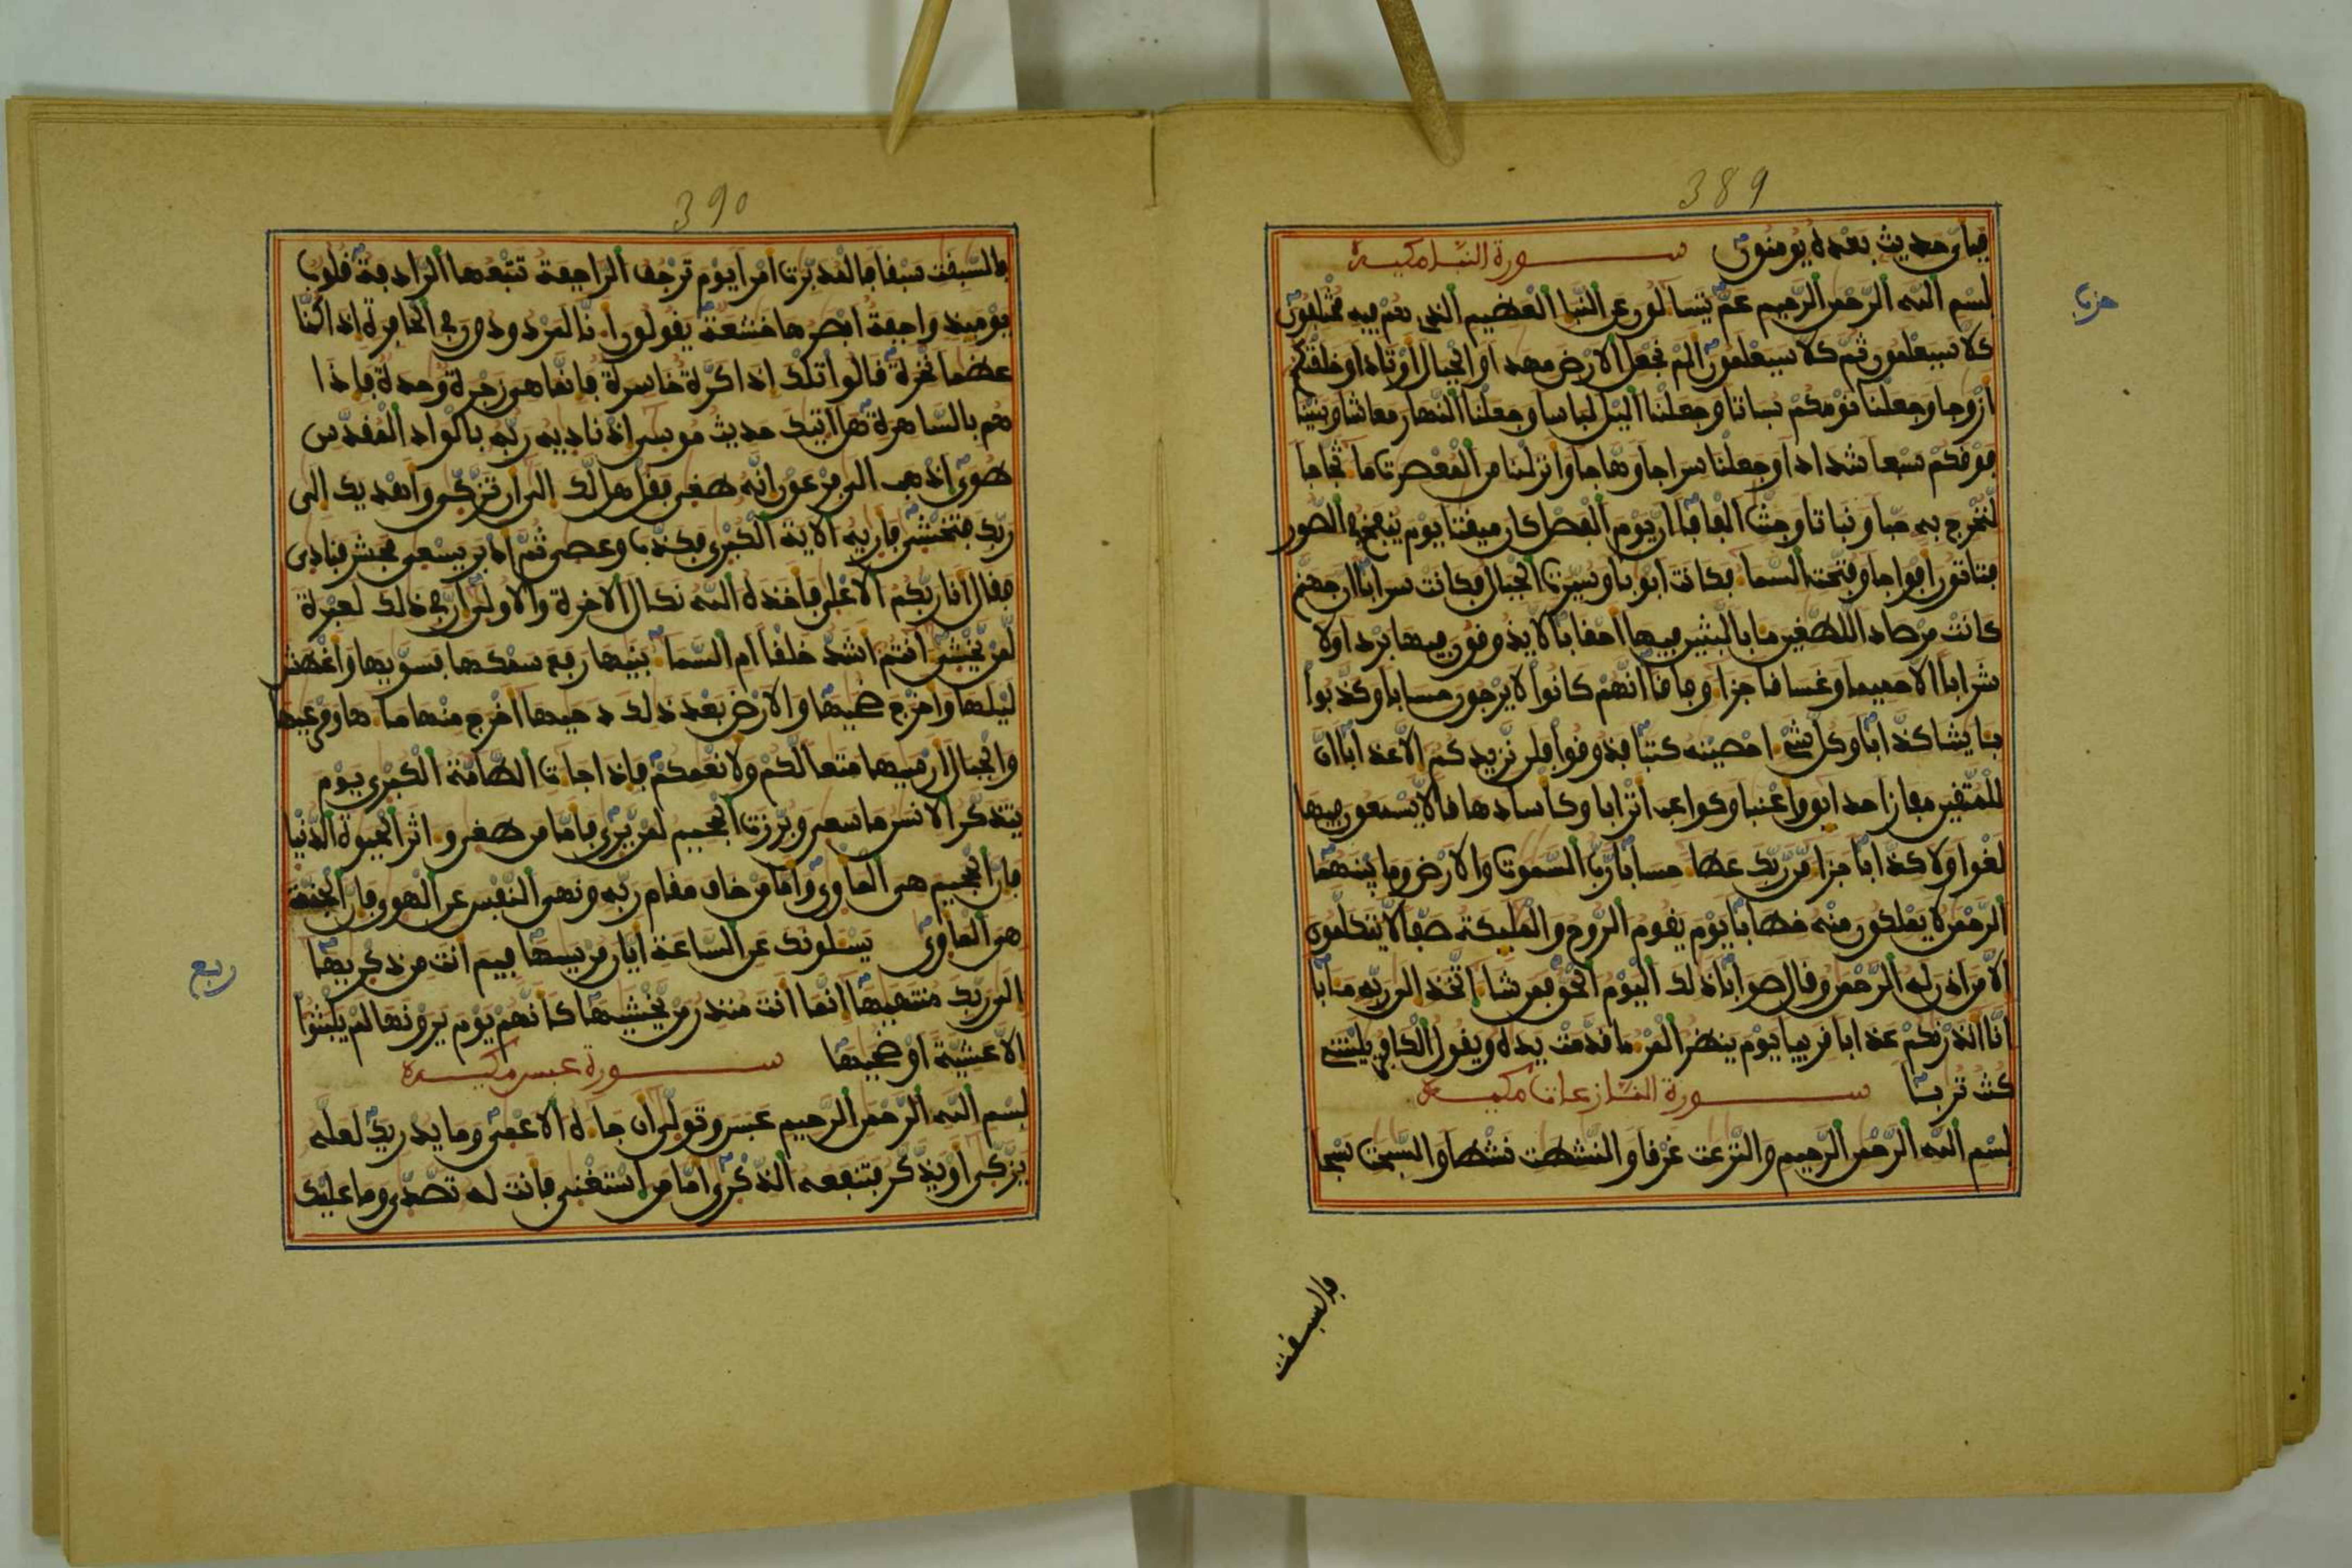 389
فبأي حديث بعده يومنون سورة النبإ مكية
حزب
بسم الله الرحمن الرحيم عم يتساءلون عن النبإ العظيم الذي هم فيه مختلفون
كلا سيعلمون ثم كلا سيعلمون الم نجعل الارض مهدا والجبال اوتادا وخلقنكم
ازوجا وجعلنا نومكم سباتا وجعلنا اليل لباسا وجعلنا النهار معاشا وبنينا
فوقكم سبعا شدادا وجعلنا سراجا وهاجا وانزلنا من المعصرت ماء ثجاجا
لنخرج به حبا ونباتا وجنت الفافا ان يوم الفصل كان ميقتا يوم ينفخ في الصور
فتاتون افواجا وفتحت السماء فكانت ابوبا وسيرت الجبال فكانت سرابا ان جهنم
كانت مرصادا للطغين مئابا لبثين فيها احقابا لا يذوقون فيها بردا ولا
شرابا الا حميما وغساقا جزاء وفاقا انهم كانوا لا يرجون حسابا وكذبوا
بئايتنا كذابا وكل شيء احصينه كتبا فذوقوا فلن نزيدكم الا عذابا ان
للمتقين مفازا حدائق واعنبا وكواعب اترابا وكأسا دهاقا لا يسمعون فيها
لغوا ولا كذابا جزاء من ربك عطاء حسابا رب السموت والارض وما بينهما
الرحمن لا يملكون منه خطابا يوم يقوم الروح والمليكة صفا لا يتكلمون
الا من اذن له الرحمن وقال صوابا ذلك اليوم الحق فمن شاء اتخذ الى ربه مئابا
انا انذرنكم عذابا قريبا يوم ينظر المرء ما قدمت يده ويقول الكافر يليتني
كنت تربا سورة النازعات مكية
بسم الله الرحمن الرحيم والنزعت غرقا والنشطت نشطا والسبحت سبحا
والسبقت
390
فالسبقت سبقا فالمدبرت امرا يوم ترجف الراجفة تتبعها الرادفة قلوب
يومئذ واجفة ابصرها خشعة يقولون انا لمردودون في الحافرة اذا كنا
عظما نخرة قالوا تلك اذا كرة خاسرة فانما هي زجرة وحدة فاذا
هم بالساهرة هل اتيك حديث موسى اذ ناديه ربه بالواد المقدس
طوى اذهب الى فرعون انه طغى فقل هل لك الى ان تزكى واهديك الى
ربك فتخشى فاريه الاية الكبرى فكذب وعصى ثم ادبر يسعى فحشر فنادى
فقال انا ربكم الاعلى فاخذه الله نكال الاخرة والاولى ان في ذلك لعبرة
لمن يخشى ءانتم اشد خلقا ام السماء بنيها رفع سمكها فسويها واغطش
ليلها واخرج ضحيها والارض بعد ذلك دحيها اخرج منها ماءها ومرعيها
والجبال ارسيها متعا لكم ولانعمكم فاذا جاءت الطامة الكبرى يوم
يتذكر الانسن ما سعى وبرزت الجحيم لمن يرى فاما من طغى وءاثر الحيوة الدنيا
فان الجحيم هي الماوى واما من خاف مقام ربه ونهى النفس عن الهوى فان الجنة
هي الماوى يسلونك عن الساعة ايان مرسيها فيم انت من ذكريها
ربع
الى ربك منتهيها انما انت منذر من يخشيها كانهم يوم يرونها لم يلبثوا
الا عشية او ضحيها سورة عبس مكية
بسم الله الرحمن الرحيم عبس وتولى ان جاءه الاعمى وما يدريك لعله
يزكى او يذكر فتنفعه الذكرى اما من استغنى فانت له تصدى وما عليك